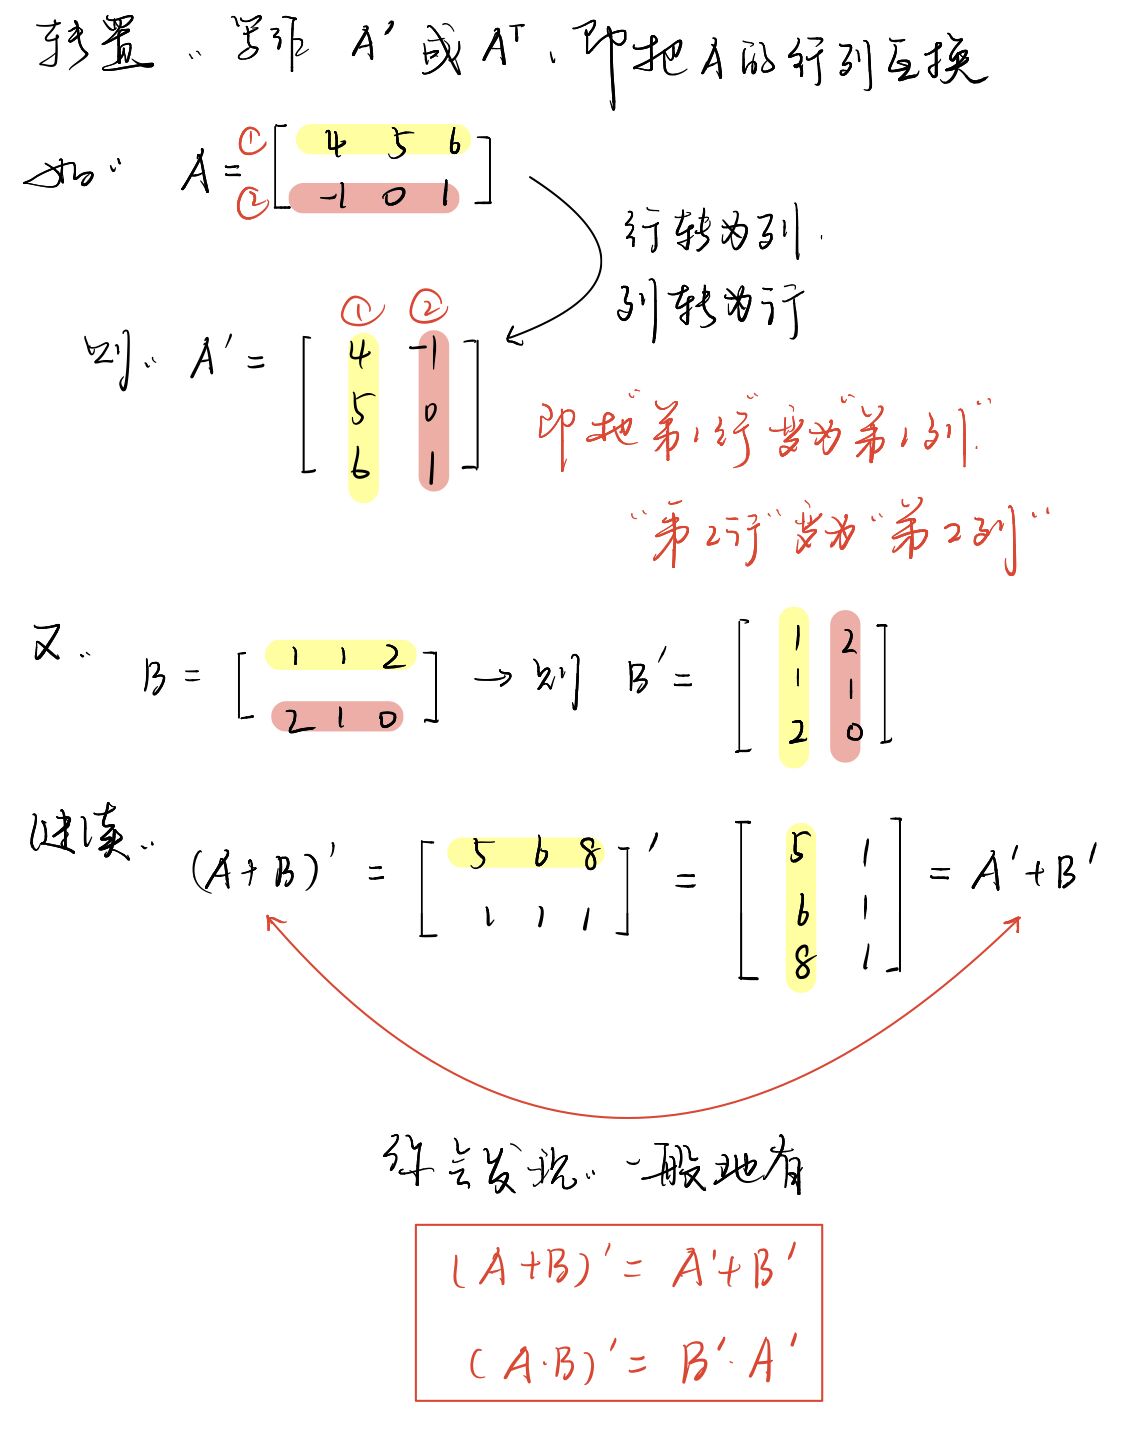 转置：写作 A' 或 Aᵀ，即把A的行列互换
如： A = ① [ 4 5 6
② -1 0 1 ]
行转为列.
列转为行
① ②
则： A' = [ 4 -1
5 0
6 1 ]
即把"第1行"变为"第1列".
"第2行"变为"第2列"
又： B = [ 1 1 2
2 1 0 ] → 则 B' = [ 1 2
1 1
2 0 ]
继续： (A+B)' = [ 5 6 8
1 1 1 ]' = [ 5 1
6 1
8 1 ] = A'+B'
你会发现：一般地有
(A+B)' = A'+B'
(A·B)' = B'·A'